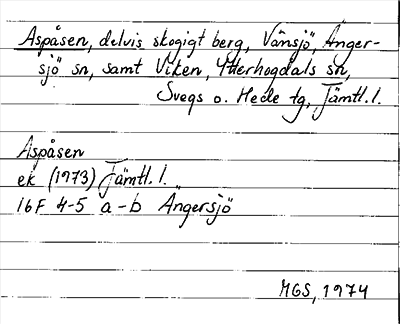 Aspåsen, delvis skogigt berg, Vänsjö, Änger-
sjö sn, samt Viken, Ytterhogdals sn,
Svegs o. Hede tg, Jämtl. l.
Aspåsen
ek (1973) Jämtl. l.
16F 4-5 a-b Ängersjö
MGS, 1974